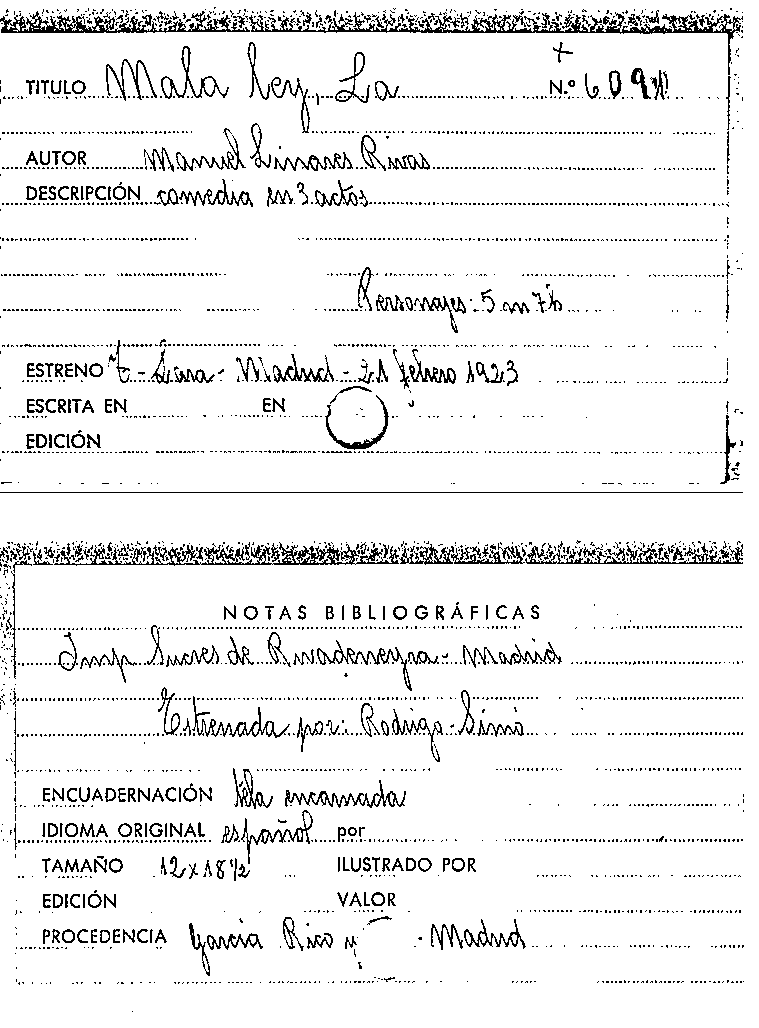 +
TITULO Mala ley, La N.º 609
AUTOR Manuel Linares Rivas
DESCRIPCIÓN comedia en 3 actos
Personajes: 5 m 7 h
ESTRENO T - Lara - Madrid - 21 febrero 1923
ESCRITA EN EN
EDICIÓN
NOTAS BIBLIOGRÁFICAS
Imp Sucres de Rivadeneyra - Madrid
Estrenada por: Rodrigo - Simó
ENCUADERNACIÓN tela encarnada
IDIOMA ORIGINAL español por
TAMAÑO 12 x 18 1/2 ILUSTRADO POR
EDICIÓN VALOR
PROCEDENCIA García Rico y - Madrid